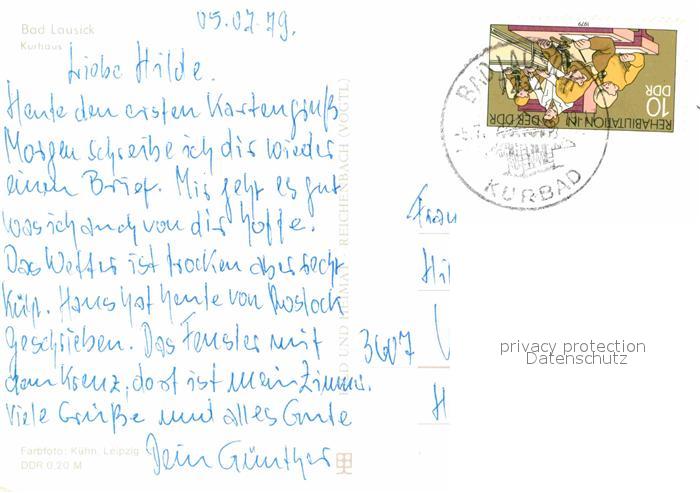 Bad Lausick
Kurhaus
05.07.79.
Liebe Hilde.
Heute den ersten Kartengruß
Morgen schreibe ich dir wieder
einen Brief. Mir geht es gut
was ich auch von dir hoffe.
Das Wetter ist trocken aber recht
Kühl. Hans hat heute von Rostock
geschrieben. Das Fenster mit
dem Kreuz, dort ist mein Zimmer.
Viele Grüße und alles Gute
Dein Günther
Farbfoto: Kühn, Leipzig
DDR 0,20 M
BILD UND HEIMAT REICHENBACH (VOGTL)
1979
10
DDR
REHABILITATION IN DER DDR
BAD LAU
KURBAD
Frau
Hil
3607
H
privacy protection
Datenschutz